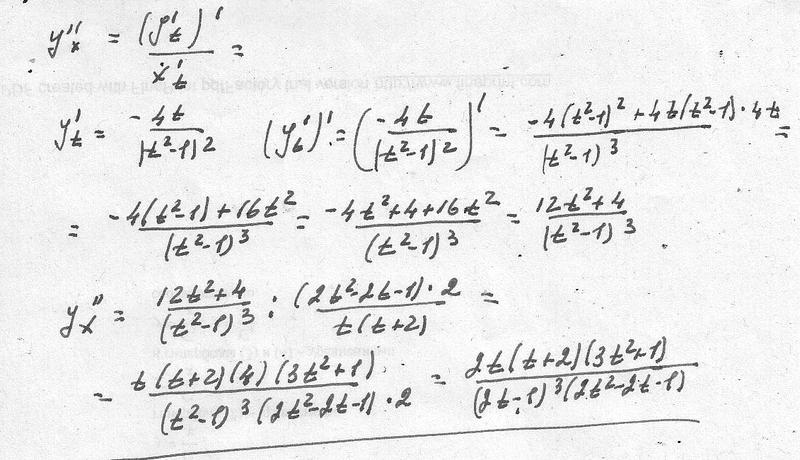 y''ₓ = (y'ₜ)' / x'ₜ =
y'ₜ = -4t / (t²-1)² (y'ₜ)' = (-4t / (t²-1)²)' = -4(t²-1)² + 4t(t²-1)·4t / (t²-1)³ =
= -4(t²-1)+16t² / (t²-1)³ = -4t²+4+16t² / (t²-1)³ = 12t²+4 / (t²-1)³
yₓ'' = 12t²+4 / (t²-1)³ : (2t²-2t-1)·2 / t(t+2) =
= t(t+2)(4)(3t²+1) / (t²-1)³(2t²-2t-1)·2 = 2t(t+2)(3t²+1) / (2t-1)³(2t²-2t-1)